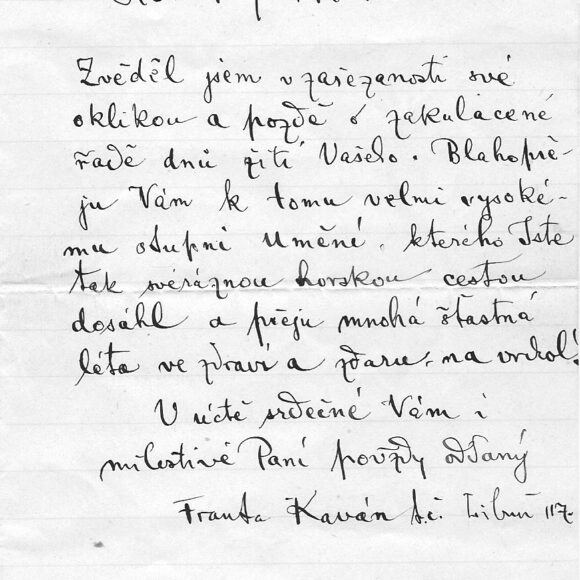 Zvěděl jsem v zařezanosti své
oklikou a pozdě o zakulacené
řadě dnů žití Vašeho. Blahopře-
ju Vám k tomu velmi vysoké-
mu stupni Umění, kterého Jste
tak svéráznou horskou cestou
dosáhl a přeju mnohá šťastná
léta ve zdraví a zdaru, na vrchol!
V úctě srdečné Vám i
milostivé Paní povždy oddaný
Franta Kaván t.č. Libuň 117.